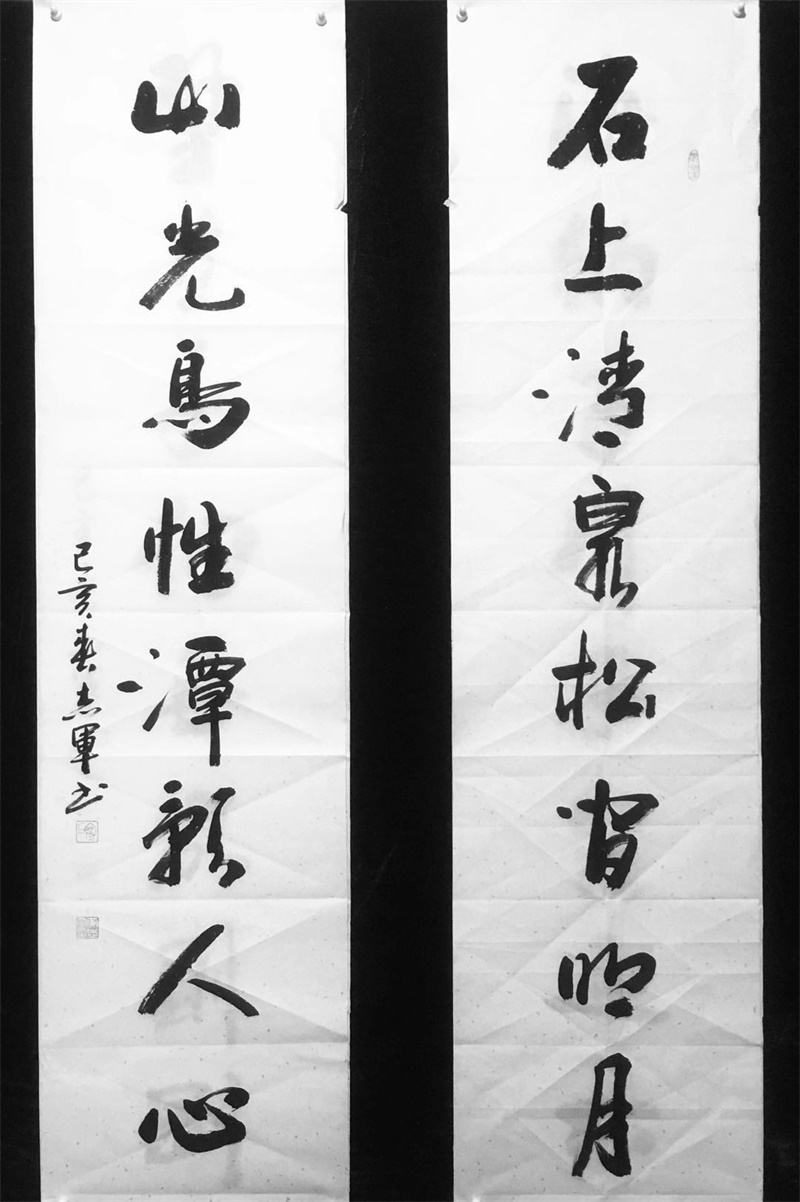 石上清泉松间明月
山光鸟性潭影人心
己亥春志軍书